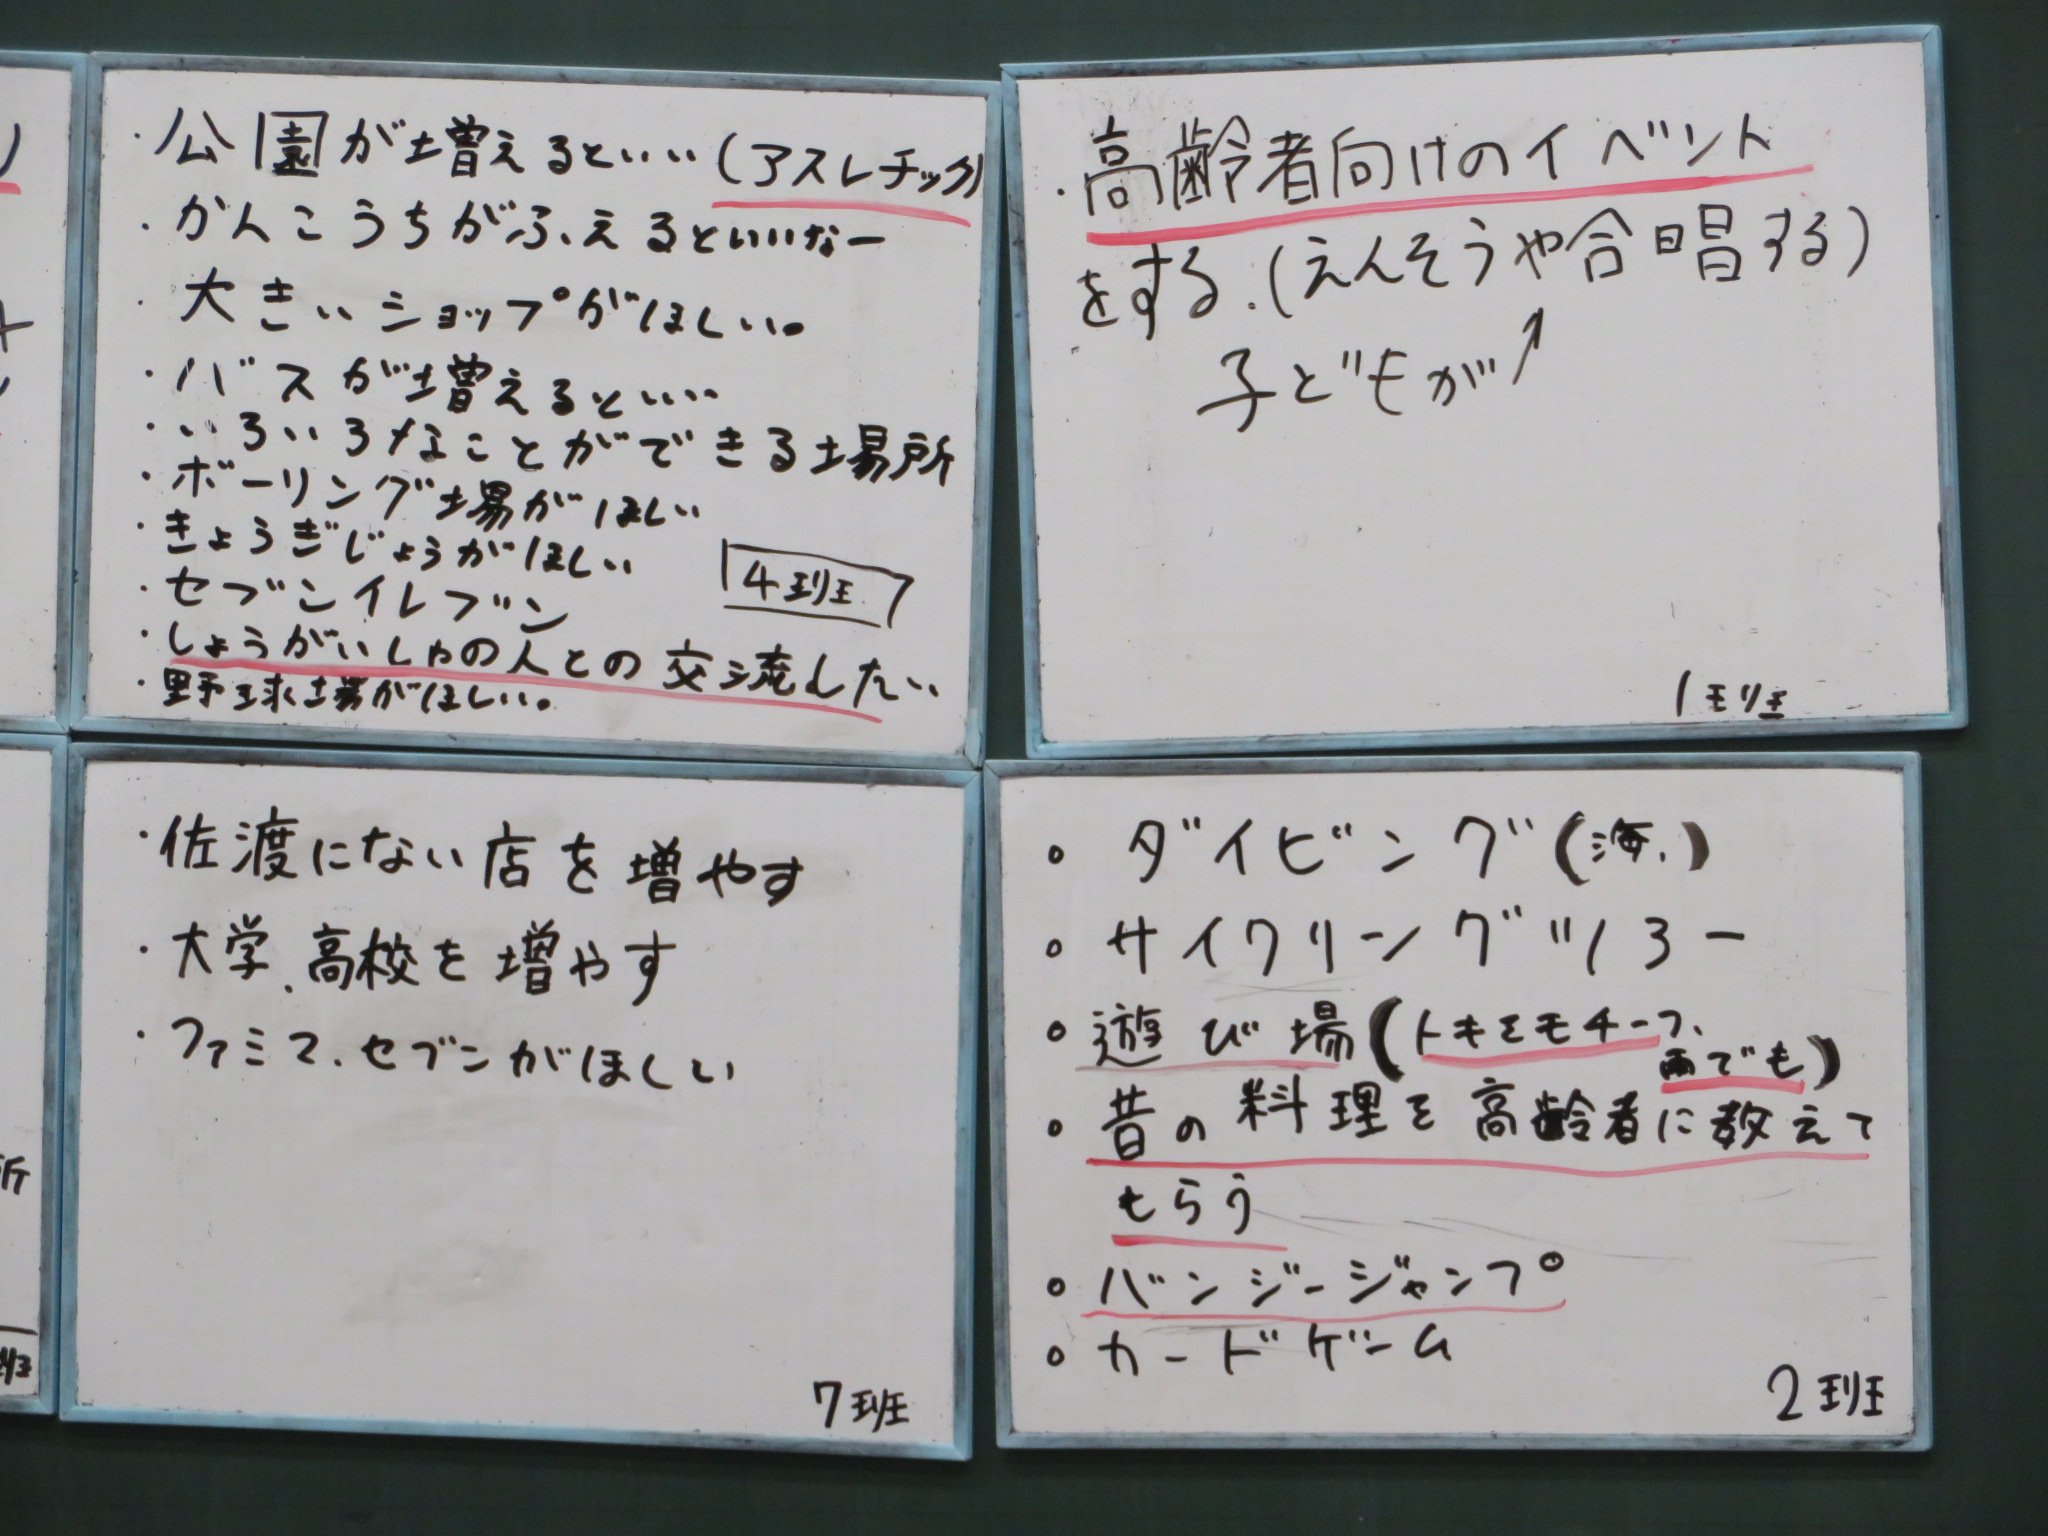 ・公園が増えるといい(アスレチック)
・かんこうちがふえるといいなー
・大きいショップがほしい。
・バスが増えるといい
・いろいろなことができる場所
・ボーリング場がほしい
・きょうぎじょうがほしい
・セブンイレブン
4班
・しょうがいしゃの人との交流したい
・野球場がほしい。
・高齢者向けのイベント
をする.(えんそうや合唱する)
子どもが↗
1班
・佐渡にない店を増やす
・大学、高校を増やす
・ファミマ、セブンがほしい
7班
・ダイビング(海、)
・サイクリングツロー
・遊び場(トキモモチーフ、
雨でも)
・昔の料理を高齢者に教えて
もらう
・バンジージャンプ
・カードゲーム
2班